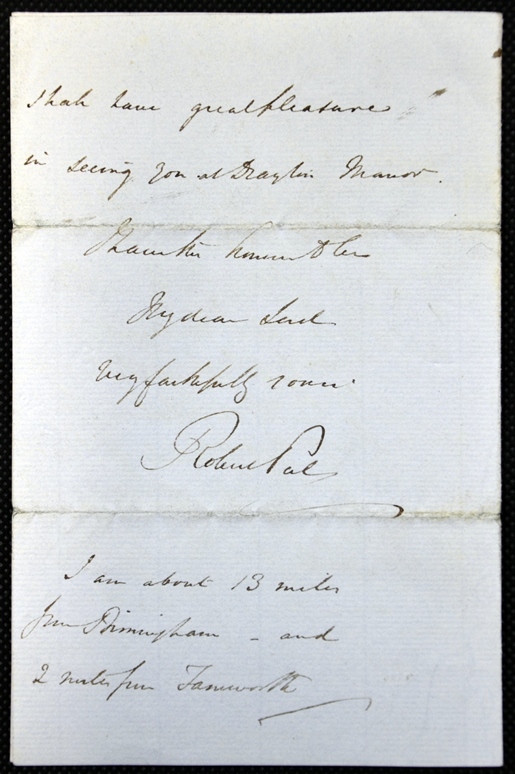 shall have great pleasure
in seeing you at Drayton Manor.
I have the honour to be
My dear Lord
Very faithfully yours
Robert Peel
I am about 13 miles
from Birmingham - and
2 miles from Tamworth